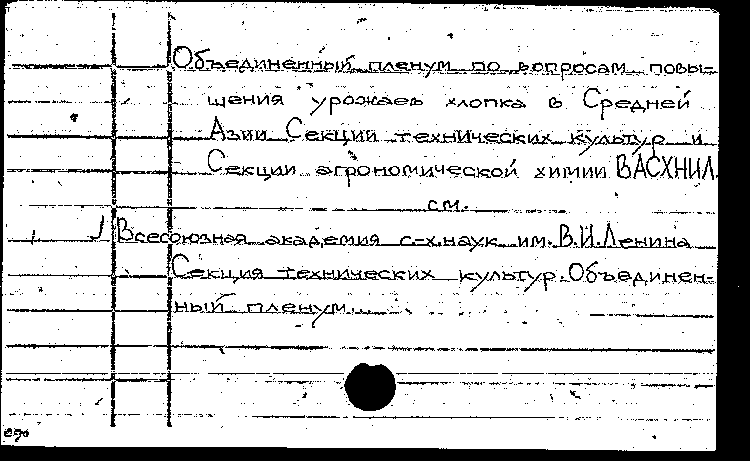 Объединенный пленум по вопросам повы-
щения урожаев хлопка в Средней
Азии Секции технических культур и
Секции агрономической химии ВАСХНИЛ.
см.
Всесоюзная академия с-х.наук им.В.И.Ленина
Секция технических культур.Объединен-
ный пленум.